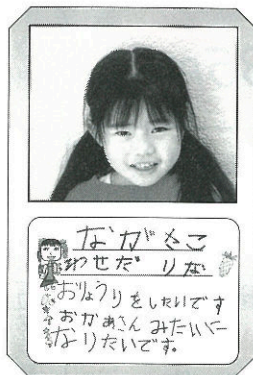 ながさこ
わせだ りな
おりょうりをしたいです
おかあさん みたいに
なりたいです。